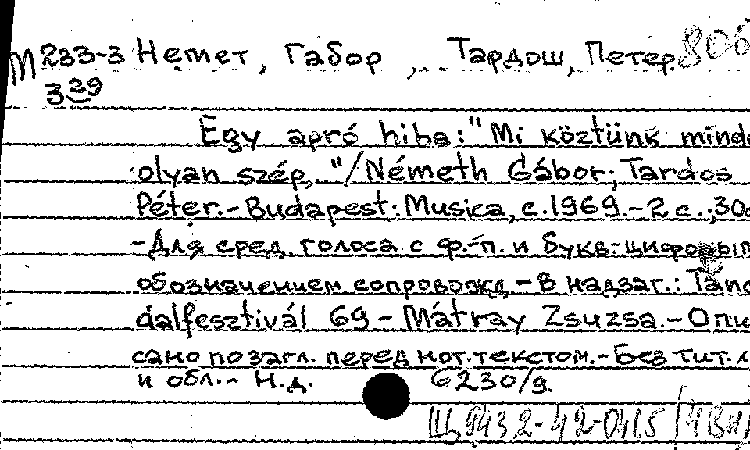 М 233-3 Немет, Габор, Тардош, Петер. 806
339
Egy apró hiba: "Mi köztünk mind
olyan szép, "/Németh Gábor; Tardos
Péter.-Budapest: Musica, c.1969.-2 с.; 30
-Для сред. голоса с ф.-п. и букв.-цифровым
обозначением сопровожд.-В надзаг.: Tánc
dalfesztivál 69-Mátray Zsuzsa.-Опи
сано по загл. перед нот. текстом.-Без тит. л.
и обл.- Н.д. 6230/g.
Щ9432-42-0415